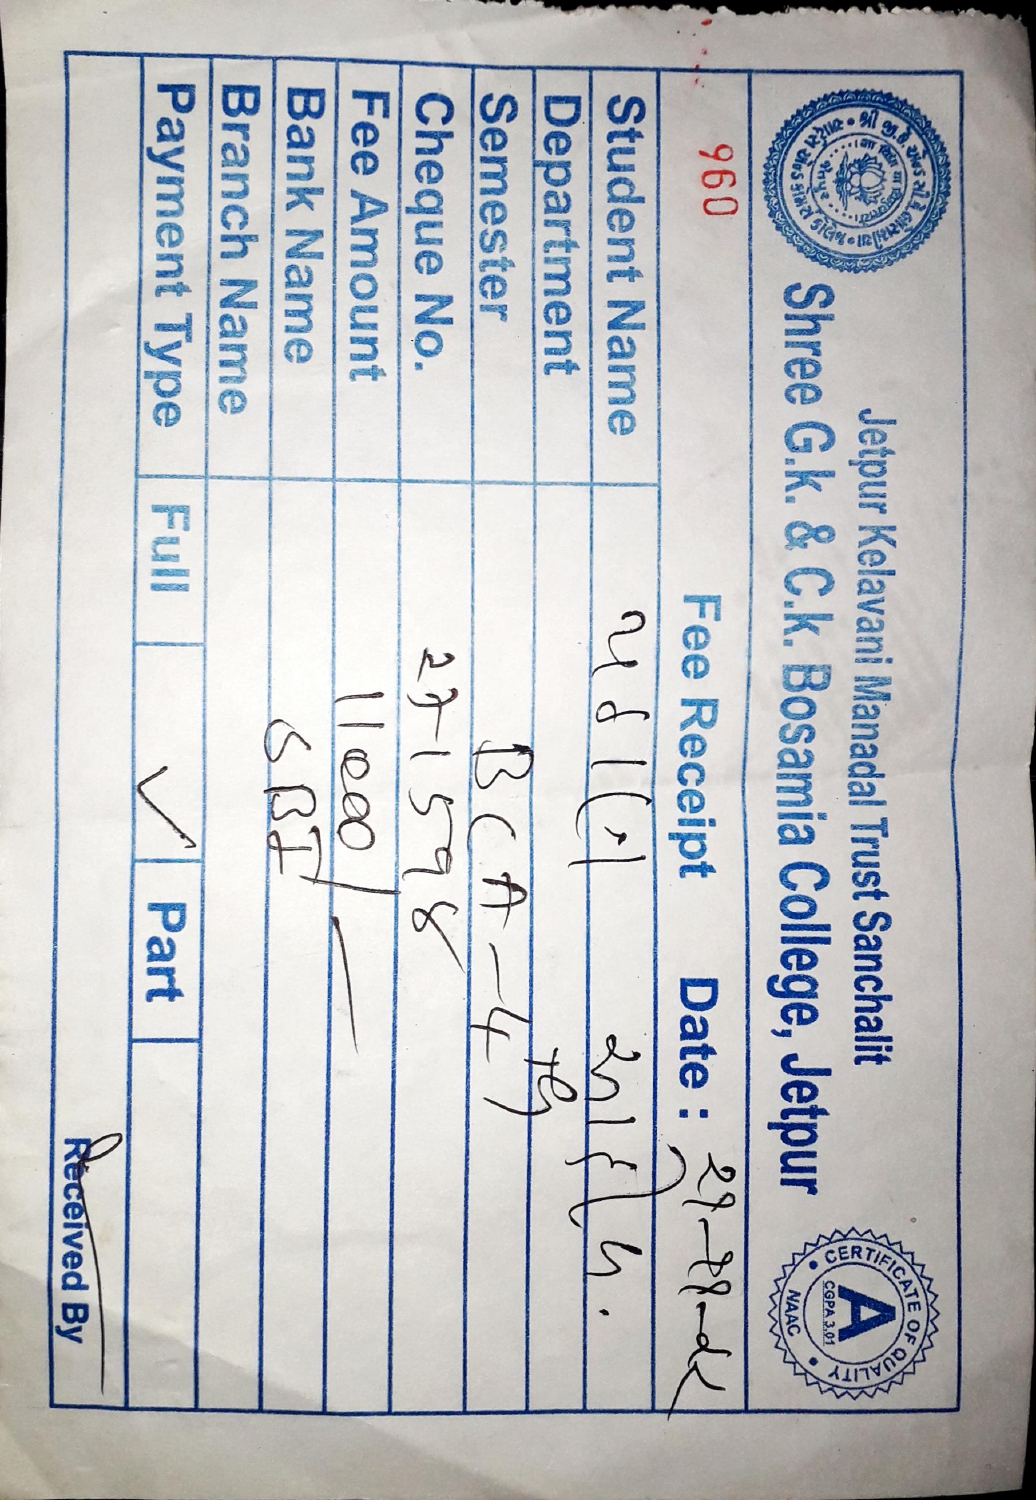 શ્રી જી.કે. એન્ડ સી.કે. બોસમીયા
આર્ટ્સ એન્ડ કોમર્સ કોલેજ
જેતપુર
Jetpur Kelavani Manadal Trust Sanchalit
Shree G.k. & C.k. Bosamia College, Jetpur
CERTIFICATE OF QUALITY
A
CGPA 3.01
NAAC
960
Fee Receipt Date :
Student Name
Department
Semester BCA-4th
Cheque No. 271598
Fee Amount 11000/-
Bank Name SBI
Branch Name
Payment Type Full ✓ Part
Received By